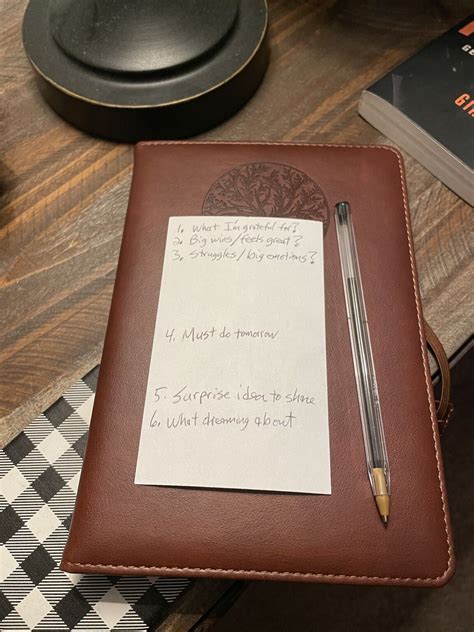 1. What I'm grateful for?
2. Big wins/feels great?
3. Struggles/big emotions?
4. Must do tomorrow
5. Surprise idea to share
6. What dreaming about